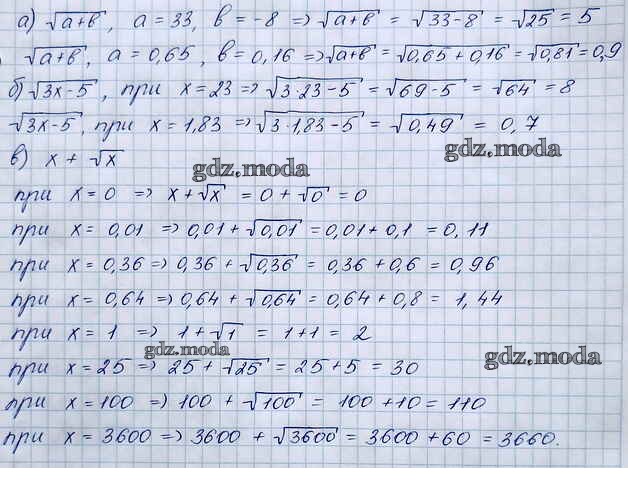 а) √(a+b), a = 33, b = -8 => √(a+b) = √(33-8) = √25 = 5
√(a+b), a = 0,65, b = 0,16 => √(a+b) = √(0,65+0,16) = √0,81 = 0,9
б) √(3x-5), при x = 23 => √(3·23-5) = √(69-5) = √64 = 8
√(3x-5), при x = 1,83 => √(3·1,83-5) = √0,49 = 0,7
в) x + √x
gdz.moda
gdz.moda
при x = 0 => x + √x = 0 + √0 = 0
при x = 0,01 => 0,01 + √0,01 = 0,01 + 0,1 = 0,11
при x = 0,36 => 0,36 + √0,36 = 0,36 + 0,6 = 0,96
при x = 0,64 => 0,64 + √0,64 = 0,64 + 0,8 = 1,44
при x = 1 => 1 + √1 = 1 + 1 = 2
gdz.moda
gdz.moda
при x = 25 => 25 + √25 = 25 + 5 = 30
при x = 100 => 100 + √100 = 100 + 10 = 110
при x = 3600 => 3600 + √3600 = 3600 + 60 = 3660.